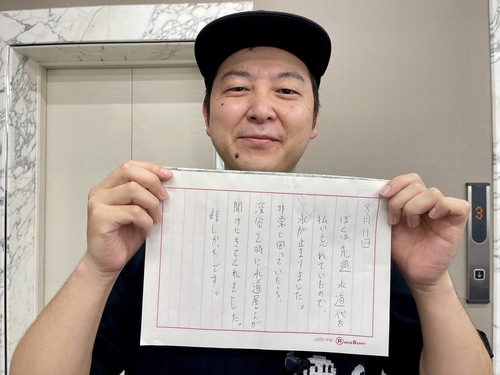 3月11日
ぼくは先週、水道代を
払い忘れていたので、
水が止まりました。
非常に困っていたら、
深谷2時に水道屋さんが
開けにきてくれました。
嬉しかったです。
JOSV-FM RADIO BERRY
3